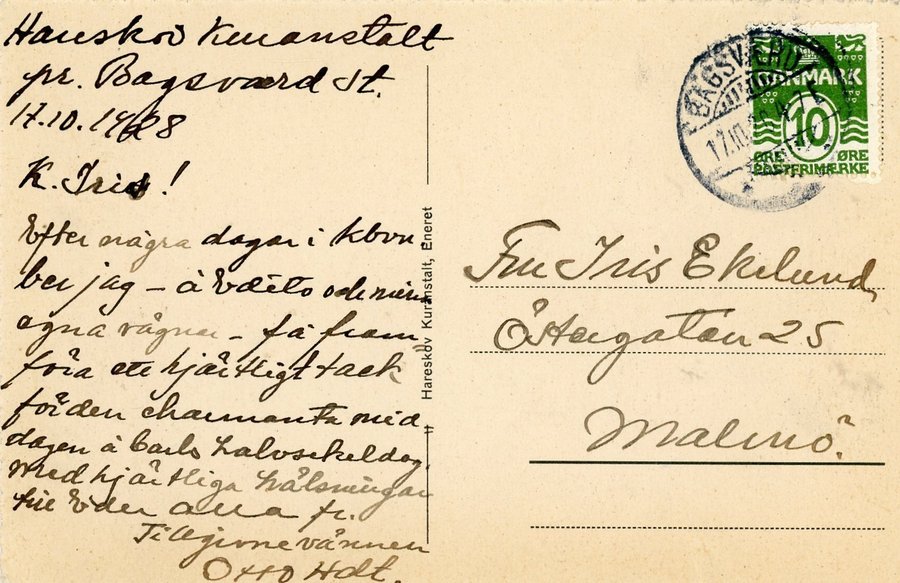 Hareskov Kuranstalt
pr. Bagsværd St.
17.10.1928
K. Iris!
Efter några dagar i Kbvn.
ber jag – å Edits och mina
egna vägnar – få fram
föra ett hjärtligt tack
för den charmanta mid
dagen å Carls halvsekeldag.
Med hjärtliga hälsningar
till Eder alla fr.
Tillgivne vännen
Otto Hdt.
Hareskov Kuranstalt, Eneret
BAGSVÆRD
DANMARK
10
ØRE ØRE
POSTFRIMÆRKE
Fru Iris Ekelund,
Östergatan 25
Malmö.